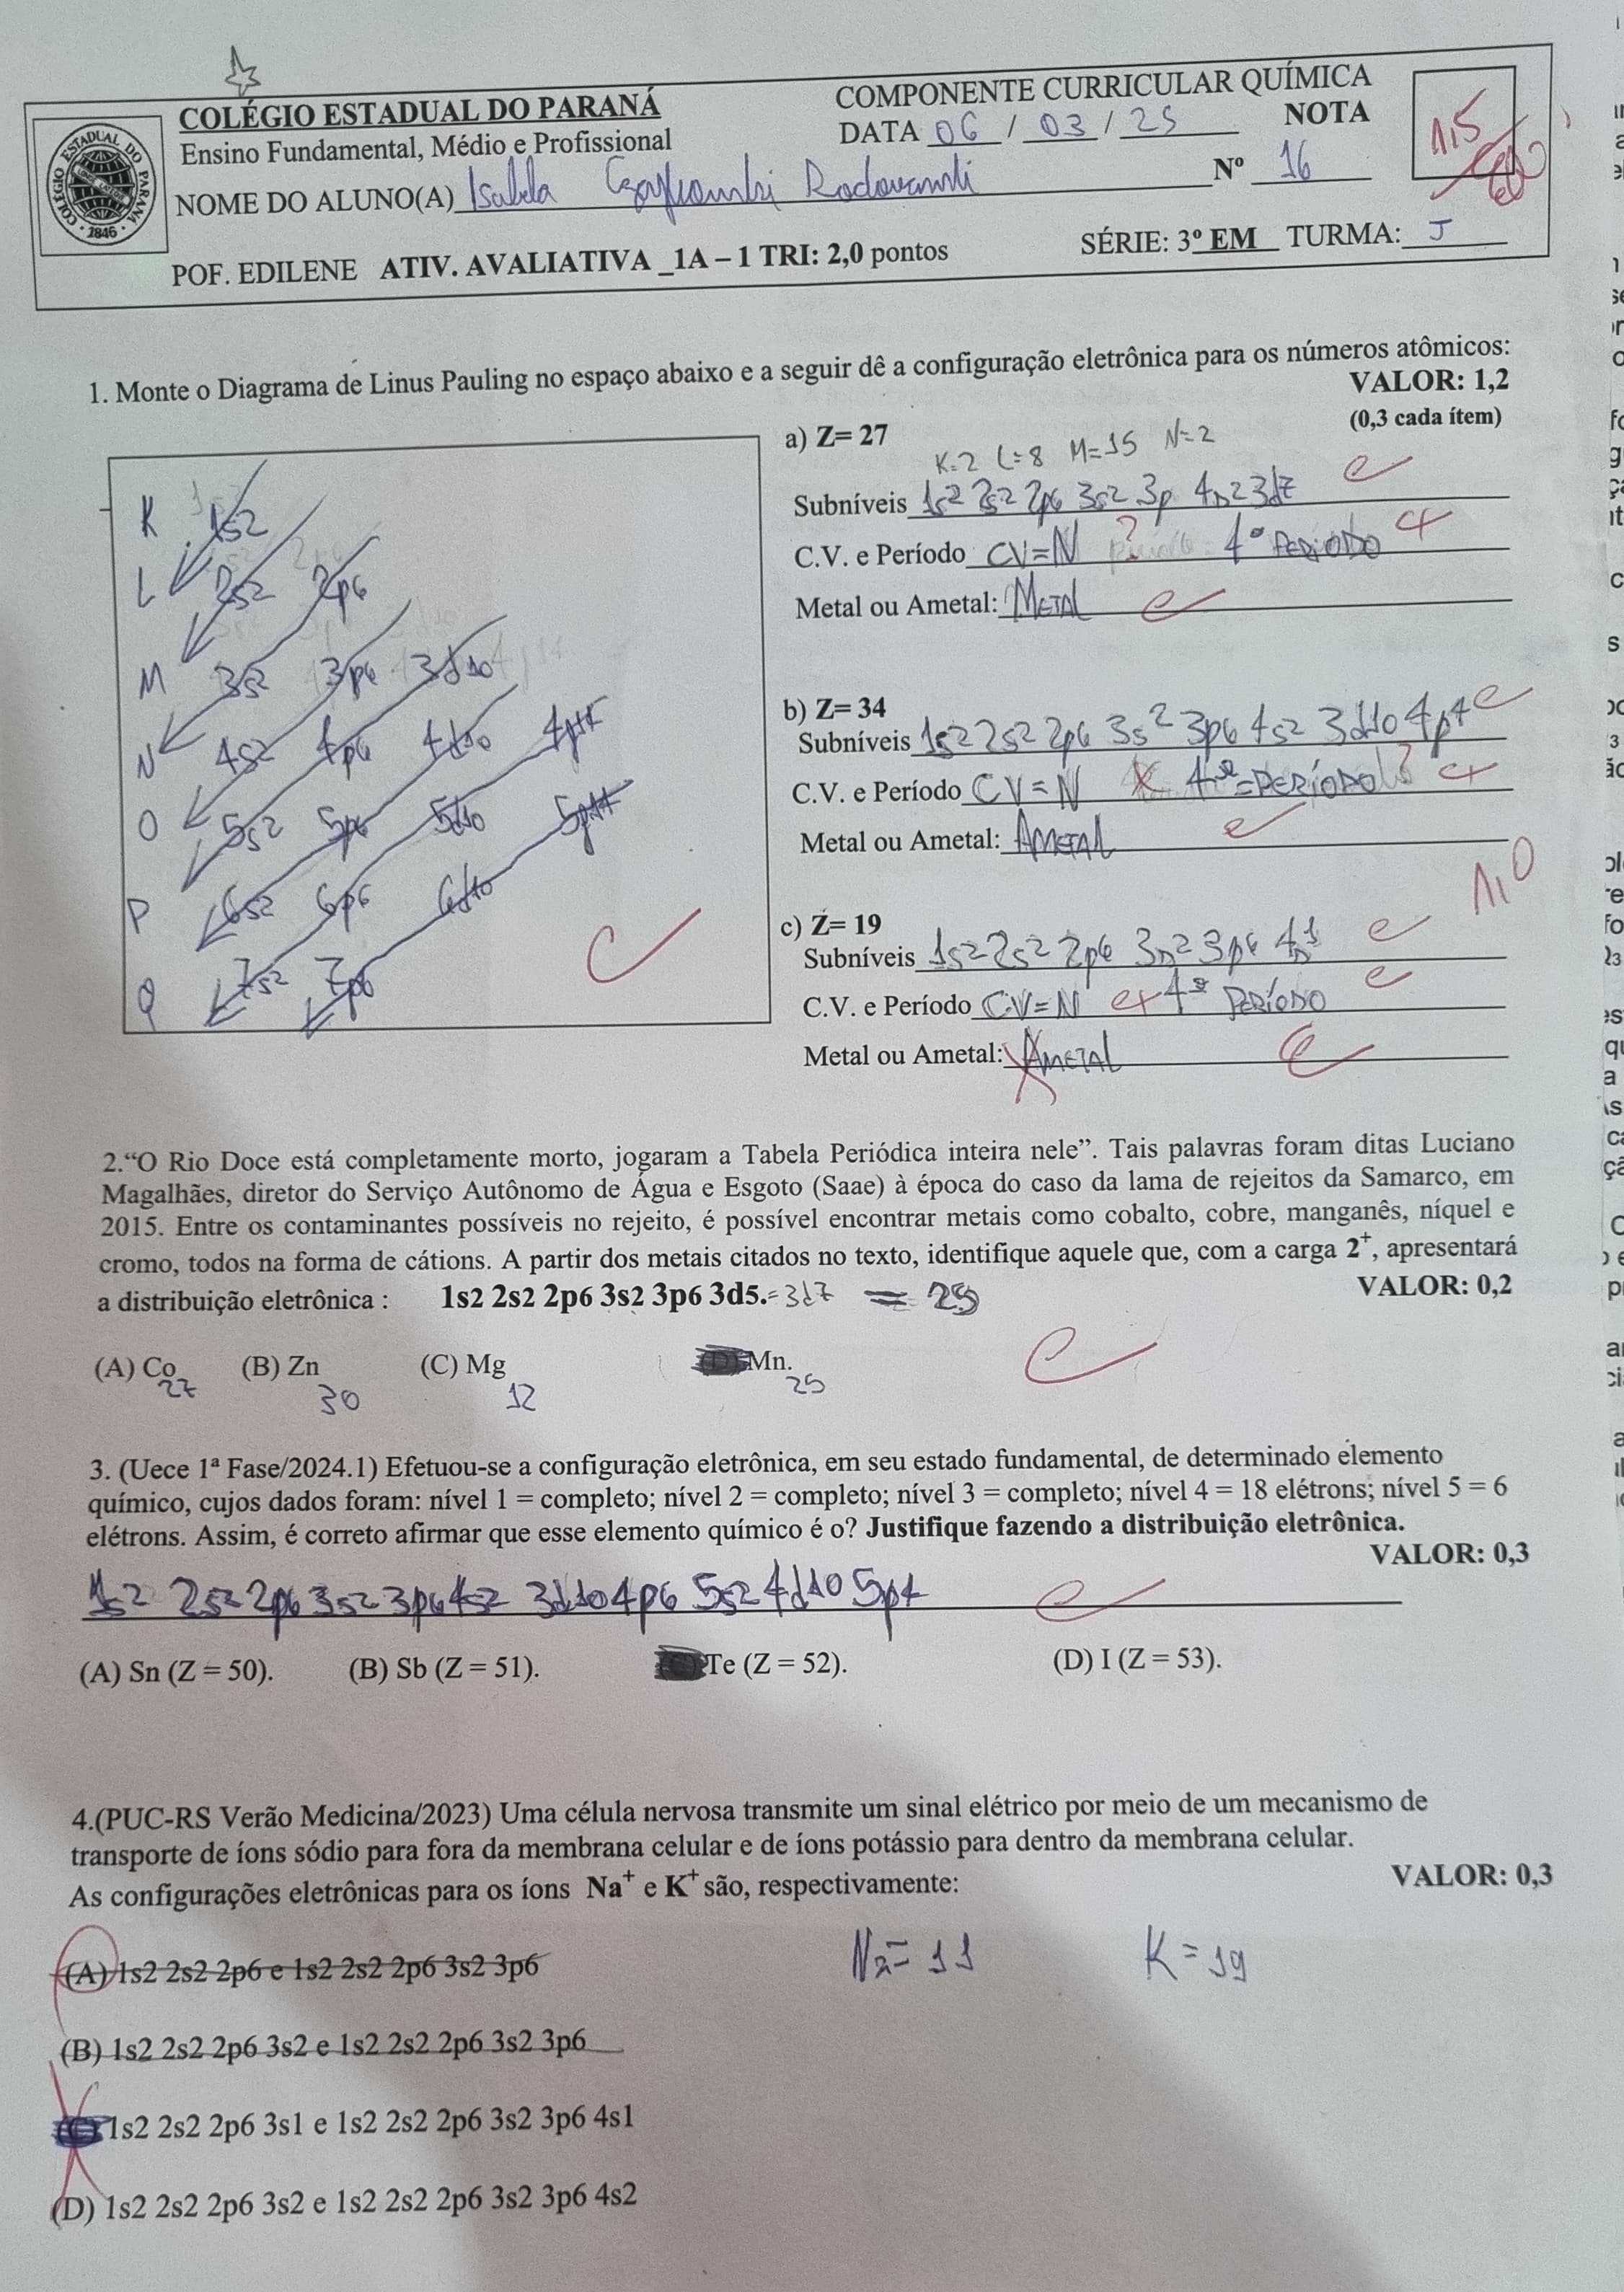 COLÉGIO ESTADUAL DO PARANÁ
Ensino Fundamental, Médio e Profissional
COMPONENTE CURRICULAR QUÍMICA
DATA 06 / 03 / 25 NOTA 1,5
COLÉGIO ESTADUAL DO PARANÁ · 1846 ·
NOME DO ALUNO(A) Isabela Nº 16
POF. EDILENE ATIV. AVALIATIVA _1A – 1 TRI: 2,0 pontos SÉRIE: 3º EM TURMA: J
1. Monte o Diagrama de Linus Pauling no espaço abaixo e a seguir dê a configuração eletrônica para os números atômicos:
VALOR: 1,2
(0,3 cada ítem)
K 1s2
L 2s2 2p6
M 3s2 3p6 3d10
N 4s2 4p6 4d10 4f14
O 5s2 5p6 5d10 5f14
P 6s2 6p6 6d10
Q 7s2 7p6
a) Z= 27
K=2 L=8 M=15 N=2
Subníveis 1s2 2s2 2p6 3s2 3p 4s2 3d7
C.V. e Período CV=N ? 4º PERIODO
Metal ou Ametal: METAL
b) Z= 34
Subníveis 1s2 2s2 2p6 3s2 3p6 4s2 3d10 4p4
C.V. e Período CV=N 4º=PERÍODO ?
Metal ou Ametal: AMETAL
1,0
c) Z= 19
Subníveis 1s2 2s2 2p6 3s2 3p6 4s1
C.V. e Período CV=N 4º PERÍODO
Metal ou Ametal: AMETAL
2.“O Rio Doce está completamente morto, jogaram a Tabela Periódica inteira nele”. Tais palavras foram ditas Luciano
Magalhães, diretor do Serviço Autônomo de Água e Esgoto (Saae) à época do caso da lama de rejeitos da Samarco, em
2015. Entre os contaminantes possíveis no rejeito, é possível encontrar metais como cobalto, cobre, manganês, níquel e
cromo, todos na forma de cátions. A partir dos metais citados no texto, identifique aquele que, com a carga 2+, apresentará
a distribuição eletrônica : 1s2 2s2 2p6 3s2 3p6 3d5. =3d7 = 25 VALOR: 0,2
(A) Co (B) Zn (C) Mg (D) Mn.
27 30 12 25
3. (Uece 1ª Fase/2024.1) Efetuou-se a configuração eletrônica, em seu estado fundamental, de determinado elemento
químico, cujos dados foram: nível 1 = completo; nível 2 = completo; nível 3 = completo; nível 4 = 18 elétrons; nível 5 = 6
elétrons. Assim, é correto afirmar que esse elemento químico é o? Justifique fazendo a distribuição eletrônica.
VALOR: 0,3
1s2 2s2 2p6 3s2 3p6 4s2 3d10 4p6 5s2 4d10 5p4
(A) Sn (Z = 50). (B) Sb (Z = 51). (C) Te (Z = 52). (D) I (Z = 53).
4.(PUC-RS Verão Medicina/2023) Uma célula nervosa transmite um sinal elétrico por meio de um mecanismo de
transporte de íons sódio para fora da membrana celular e de íons potássio para dentro da membrana celular.
As configurações eletrônicas para os íons Na+ e K+ são, respectivamente: VALOR: 0,3
Na=11 K=19
(A) 1s2 2s2 2p6 e 1s2 2s2 2p6 3s2 3p6
(B) 1s2 2s2 2p6 3s2 e 1s2 2s2 2p6 3s2 3p6
(C) 1s2 2s2 2p6 3s1 e 1s2 2s2 2p6 3s2 3p6 4s1
(D) 1s2 2s2 2p6 3s2 e 1s2 2s2 2p6 3s2 3p6 4s2